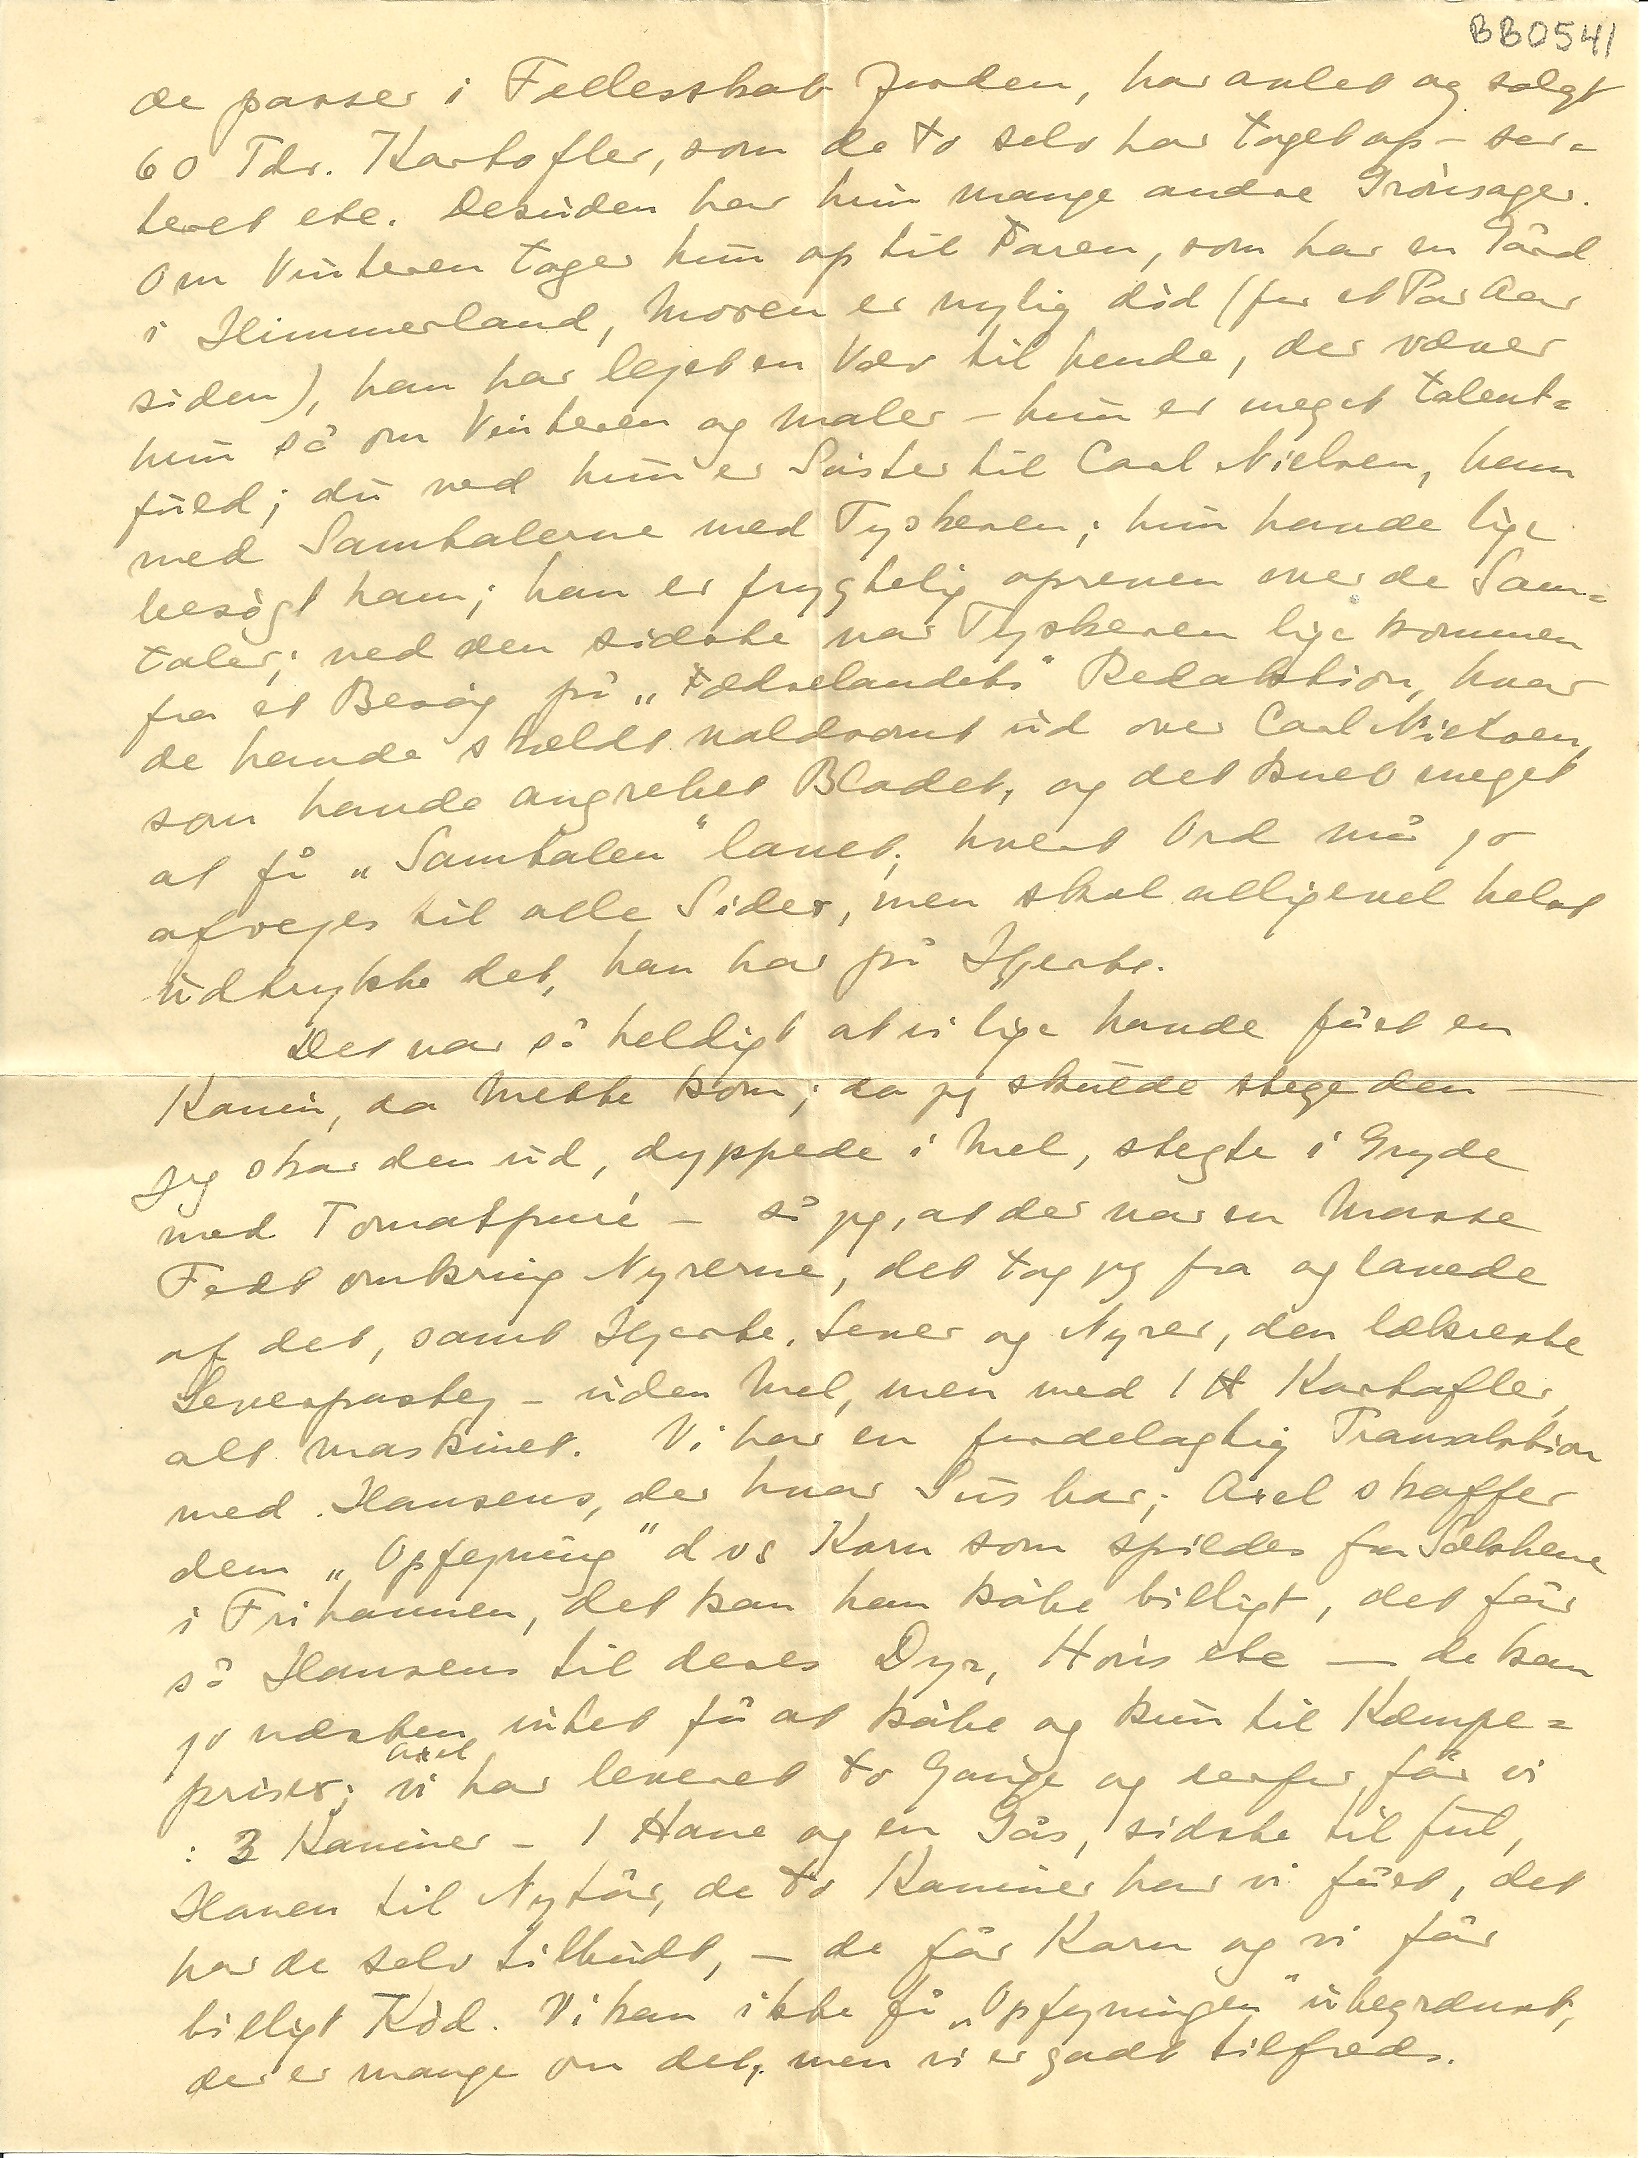 BB0541
de passer i Fællesskab Jorden, har avlet og solgt
60 Tdr. Kartofler, som de to selv har taget op – sor=
teret etc. Desuden har hun mange andre Grönsager.
Om Vinteren tager hun op til Faren, som har en Gård
i Himmerland, Moren er nylig död (for et Par Aar
siden), han har lejet en Væv til hende, der væver
hun så om Vinteren og maler – hun er meget talent=
fuld; du ved hun er Söster til Carl Nielsen, ham
med Samtalerne med Tyskeren; hun havde lige
besögt ham; han er frygtelig oprevet over de Sam=
taler; ved den sidste var Tyskeren lige kommen
fra et Besög på „Fædrelandets“ Redaktion, hvor
de havde skældt voldsomt ud over Carl Nielsen,
som havde angrebet Bladet, og det kneb meget
at få „Samtalen“ lavet; hvert Ord må jo
afvejes til alle Sider, men skal alligevel helst
udtrykke det, han har på Hjerte.
Det var så heldigt at vi lige havde fået en
Kanin, da Mette kom; da jeg skulde stege den –
jeg skar den ud, dyppede i Mel, stegte i Gryde
med Tomatpuré – så jeg, at der var en Masse
Fedt omkring Nyrerne, det tog jeg fra og lavede
af det, samt Hjerte, Lever og Nyrer, den lækreste
Leverpostej – uden Mel, men med 1 ℔ Kartofler,
alt maskinet. Vi har en fordelagtig Transaktion
med Hansens, der hvor Sus bor; Axel skaffer
dem „Opfejning“ d v s Korn som spildes fra Sækkene
i Frihavnen, det kan han købe billigt, det får
så Hansens til deres Dyr, Höns etc – de kan
jo næsten intet få at köbe og kun til Kæmpe=
priser; vi Axel har leveret to Gange og derfor får vi
: 3 Kaniner – 1 Hane og en Gås, sidste til Jul,
Hanen til Nytår, de to Kaniner har vi fået, det
har de selv tilbudt, – de får Korn og vi får
billigt Köd. Vi kan ikke få „Opfejningen“ ubegrænset,
der er mange om det, men vi er godt tilfreds.